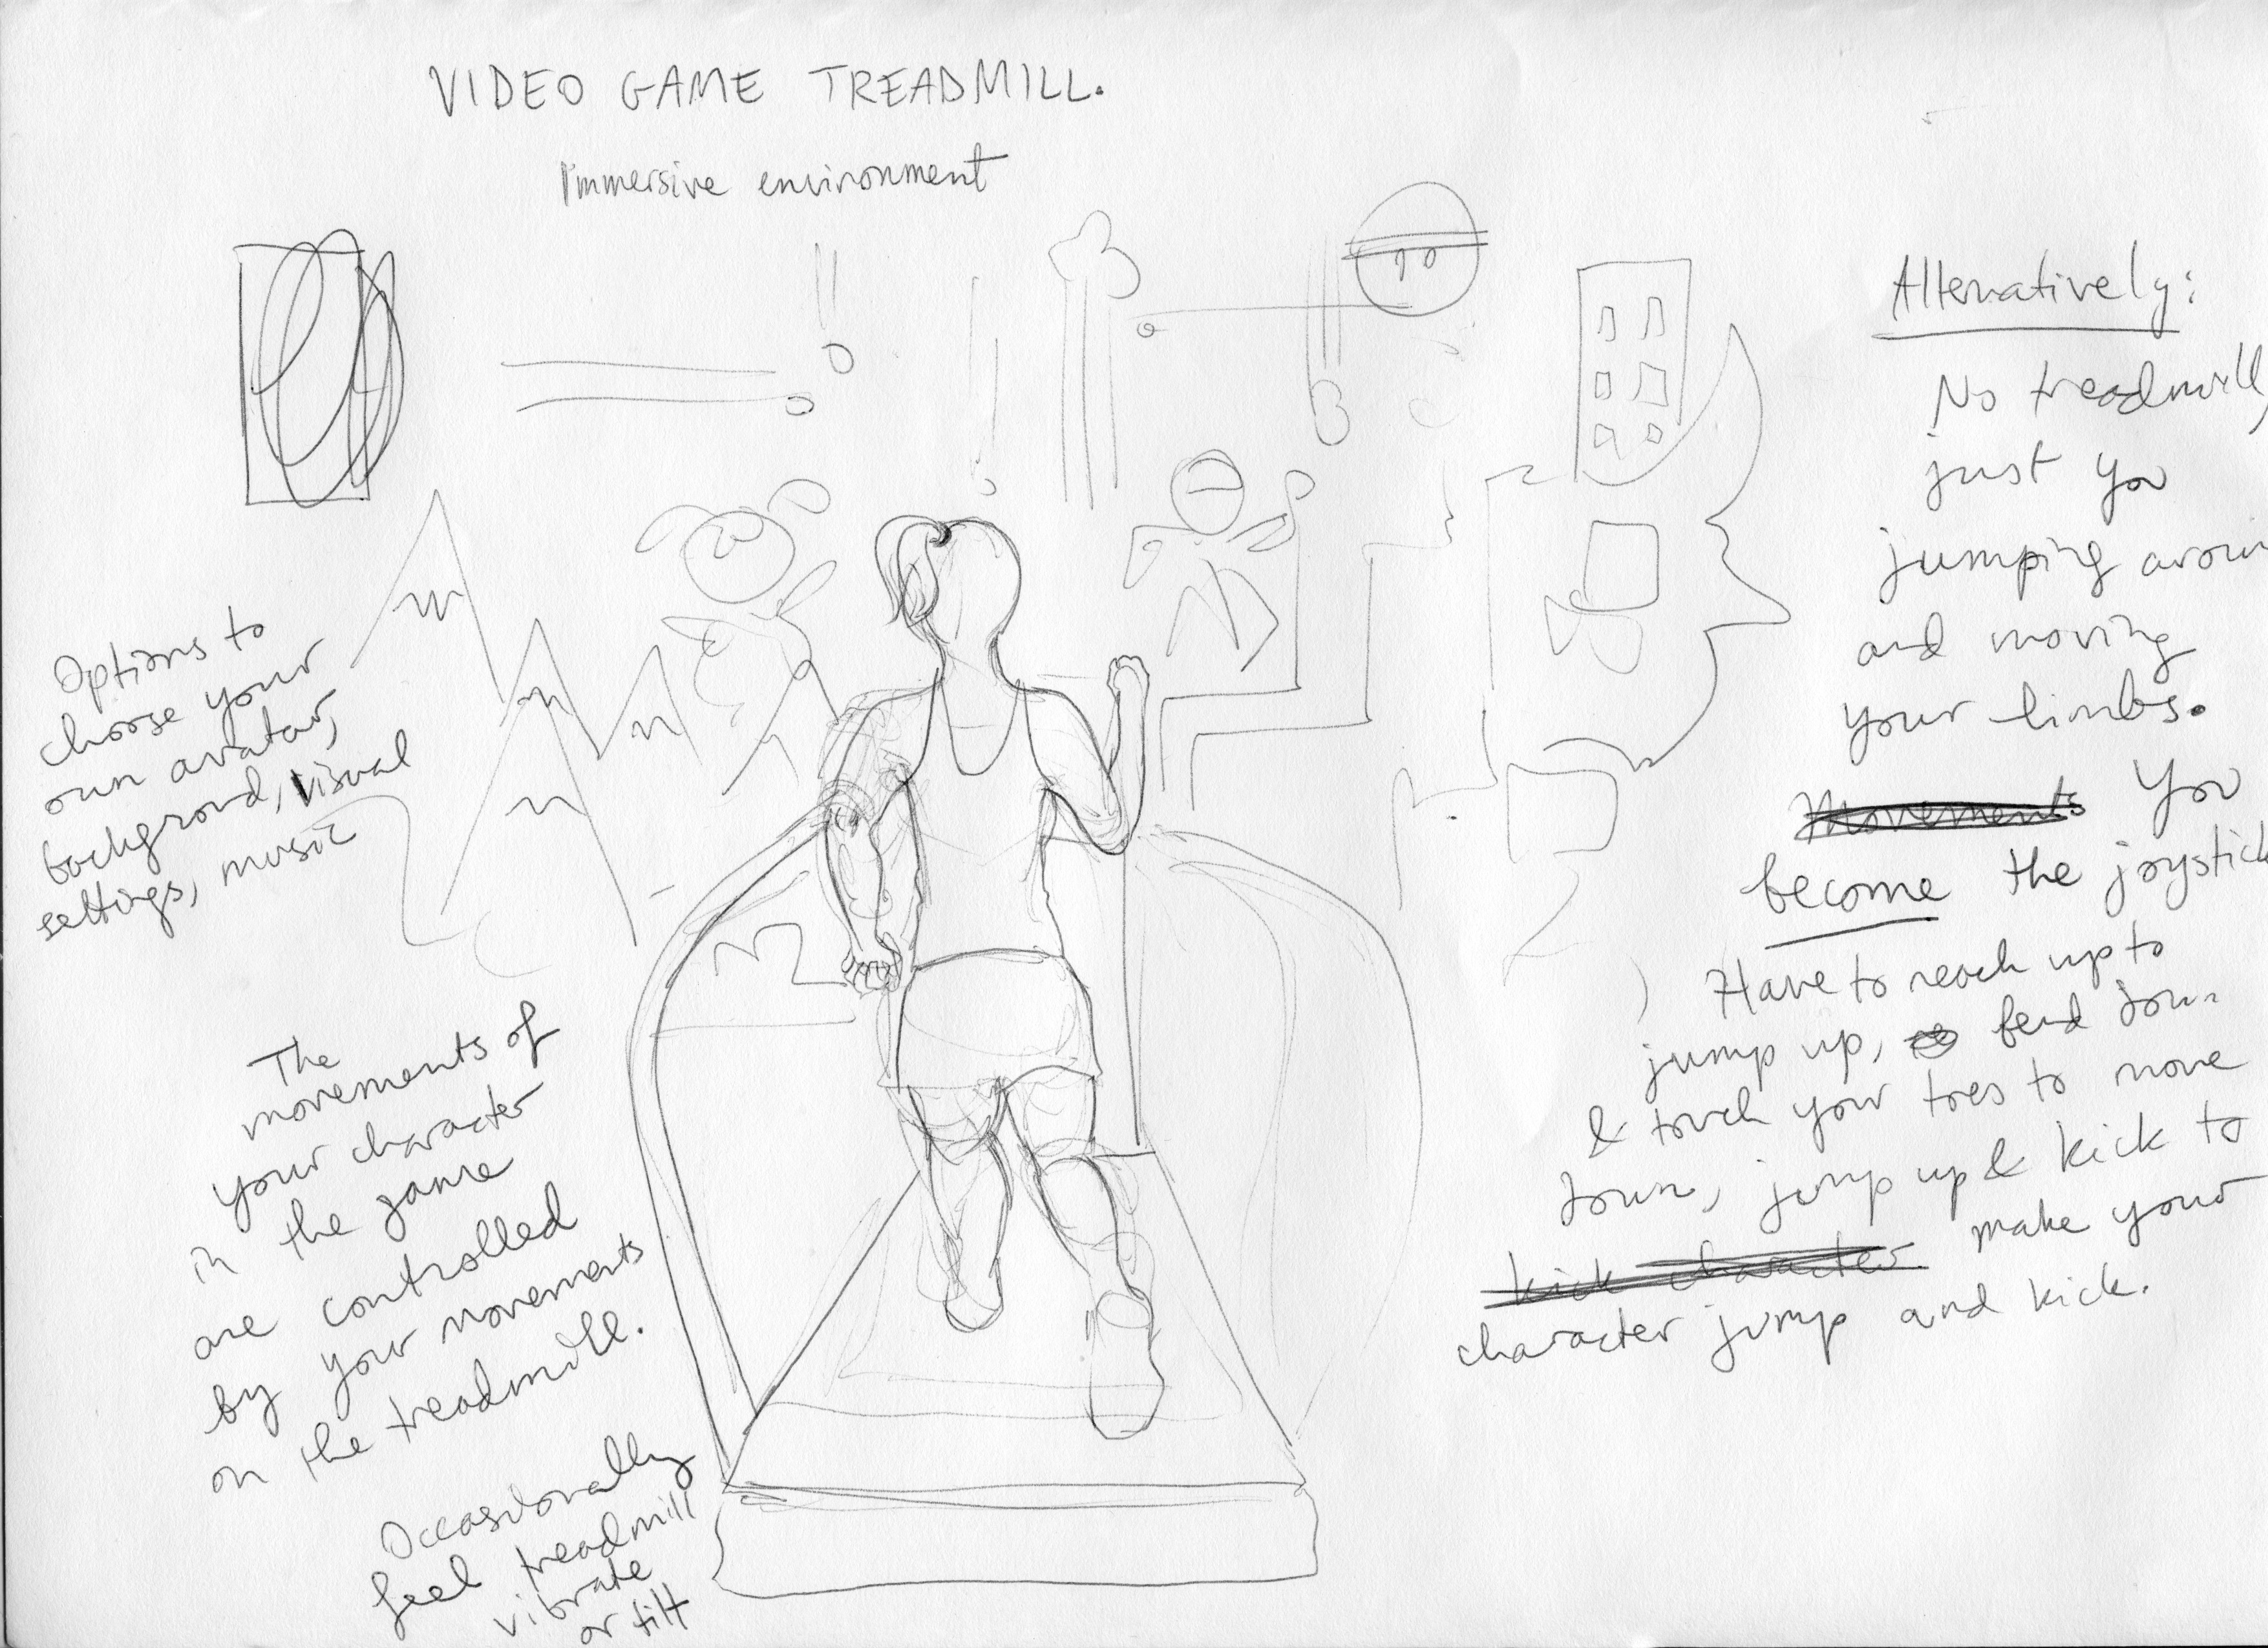 VIDEO GAME TREADMILL.
Immersive environment
Options to
choose your
own avatar,
background, visual
settings, music
The
movements of
your character
in the game
are controlled
by your movements
on the treadmill.
Occasionally
feel treadmill
vibrate
or tilt
Alternatively:
No treadmill,
just you
jumping aroun
and moving
your limbs.
Movements You
become the joystick
Have to reach up to
jump up, bend down
& touch your toes to move
down, jump up & kick to
kick character. make your
character jump and kick.